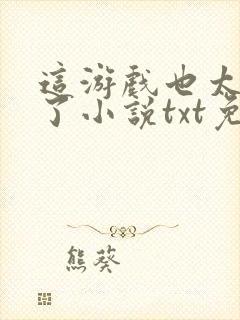 這游戲也太
了小説txt免
熊葵